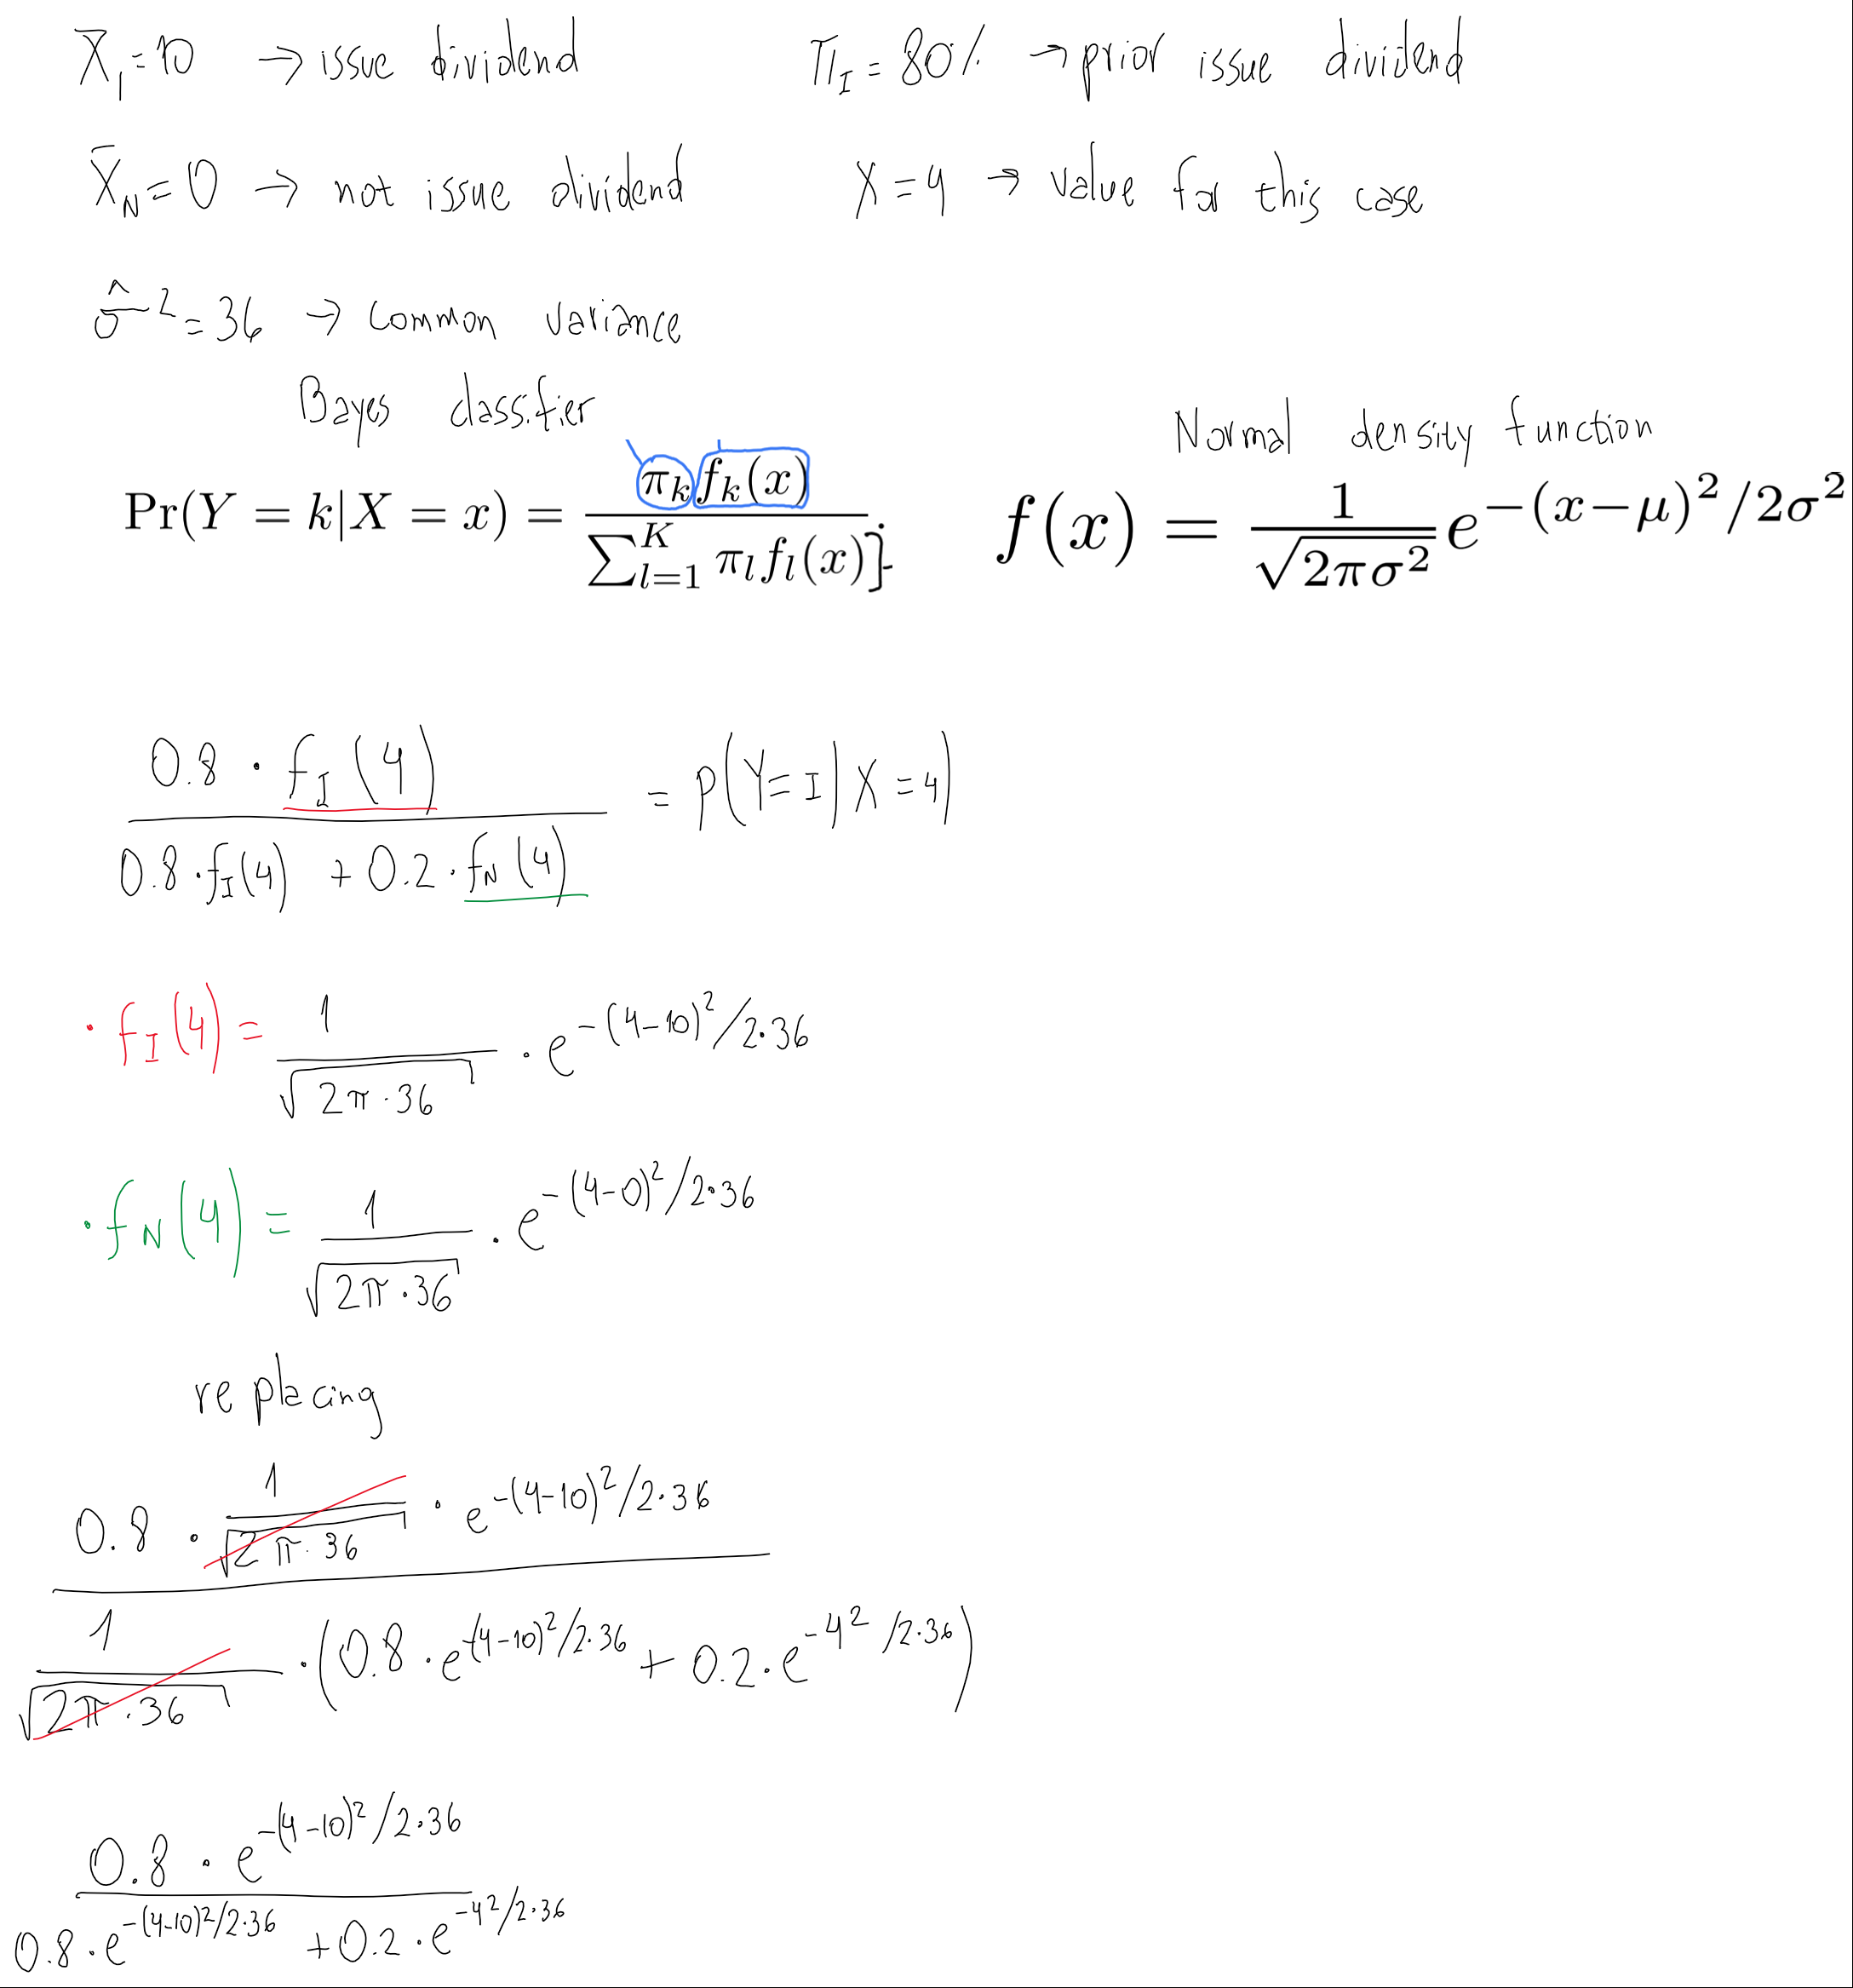 X̄_I = 10 → issue dividend
π_I = 80% → prior issue dividend
X̄_N = 0 → not issue dividend
X = 4 → value for this case
σ̂² = 36 → common variance
Bayes classifier
Normal density function
Pr(Y = k|X = x) = π_k f_k(x) / ∑_{l=1}^{K} π_l f_l(x)}.
f(x) = 1/√(2πσ²) e^{-(x-μ)²/2σ²}
0.8 · f_I(4) / 0.8 · f_I(4) + 0.2 · f_N(4) = P(Y = I | X = 4)
· f_I(4) = 1/√(2π·36) · e^{-(4-10)²/2·36}
· f_N(4) = 1/√(2π·36) · e^{-(4-0)²/2·36}
replacing
0.8 · 1/√(2π·36) · e^{-(4-10)²/2·36}
1/√(2π·36) · (0.8 · e^{-(4-10)²/2·36} + 0.2 · e^{-4²/2·36})
0.8 · e^{-(4-10)²/2·36}
0.8 · e^{-(4-10)²/2·36} + 0.2 · e^{-4²/2·36}